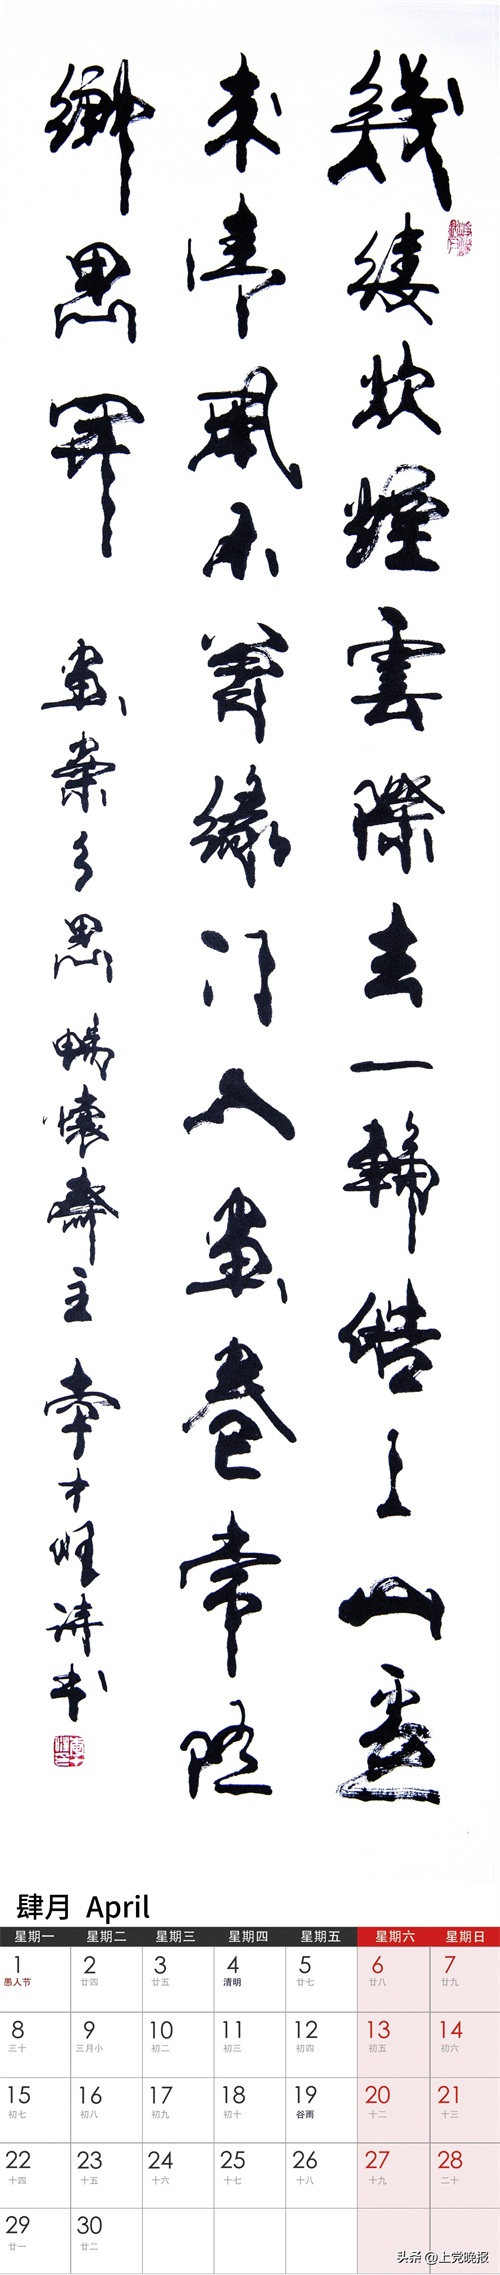 幾縷炊煙雲際去一輪皓山
來清風不緣門入畫卷常隨
鄉思開
畫案乡思 暢懷齋主 李才旺詩书
肆月 April
星期一 星期二 星期三 星期四 星期五 星期六 星期日
1 2 3 4 5 6 7
愚人节 廿四 廿五 清明 廿七 廿八 廿九
8 9 10 11 12 13 14
三十 三月小 初二 初三 初四 初五 初六
15 16 17 18 19 20 21
初七 初八 初九 初十 谷雨 十二 十三
22 23 24 25 26 27 28
十四 十五 十六 十七 十八 十九 二十
29 30
廿一 廿二
头条 @上党晚报